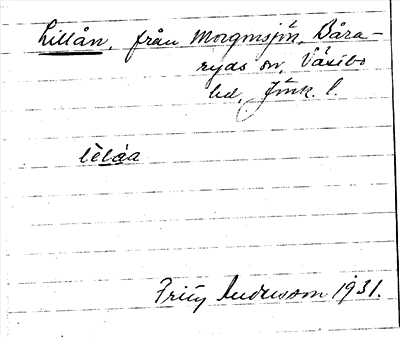 Lillån, från Morgmsjön, Båra-
ryds sn, Västbo
hd, Jönk. l.
lèlåa
Fritz Andersson 1931.